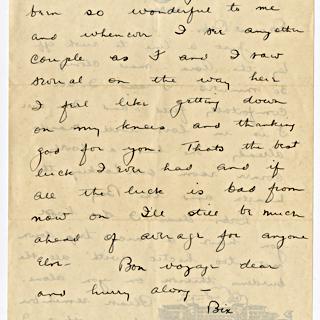 been so wonderful to me
and whenever I see any other
couple as I and I saw
several on the way here
I feel like getting down
on my knees and thanking
god for you. Thats the best
luck I ever had and if
all the luck is bad from
now on I'll still be much
ahead of average for anyone
Else - Bon voyage dear
and hurry along -
Bix